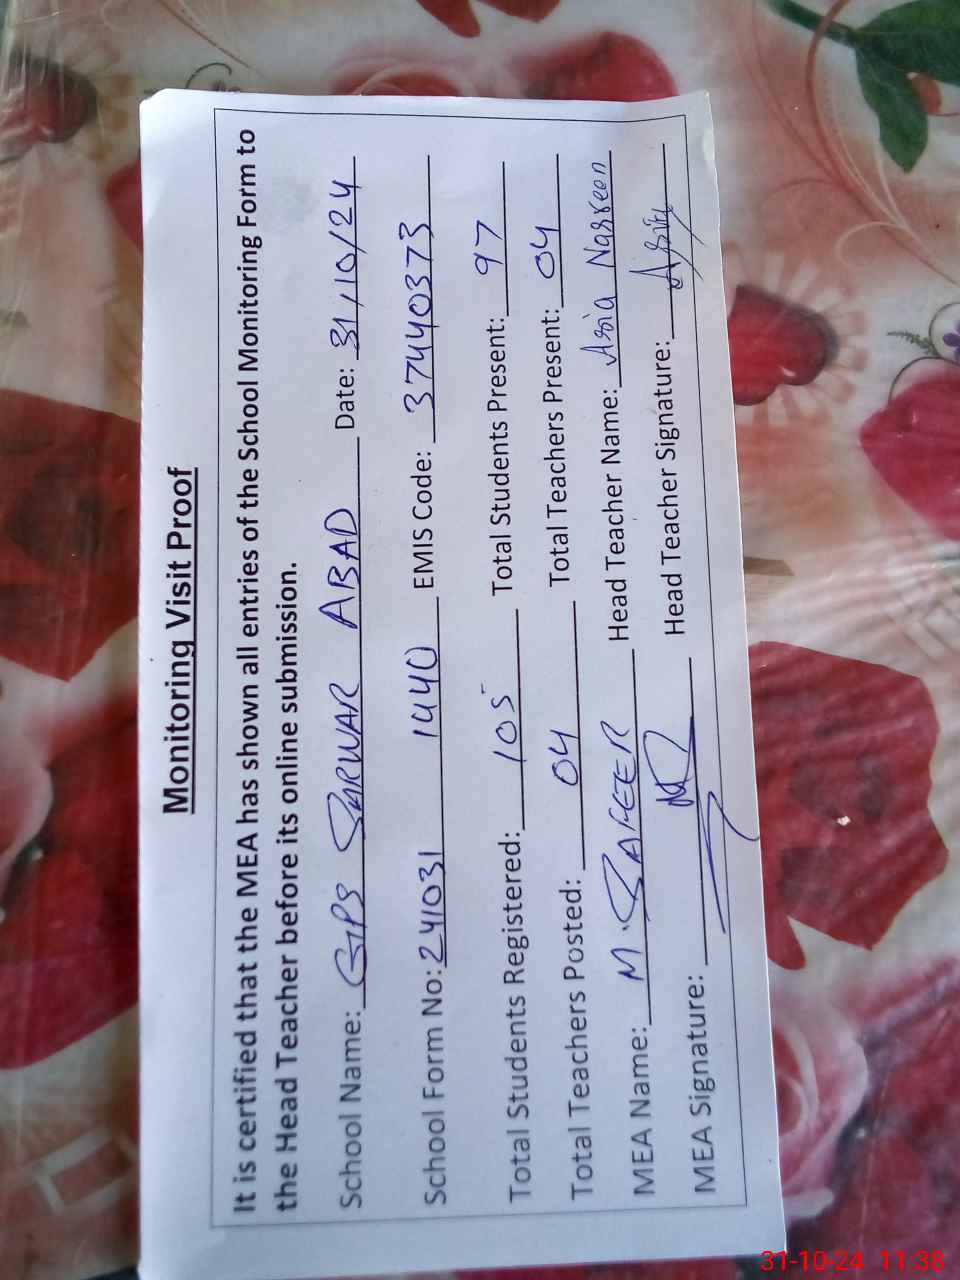 Monitoring Visit Proof
It is certified that the MEA has shown all entries of the School Monitoring Form to
the Head Teacher before its online submission.
School Name: GPS SARWAR ABAD Date: 31/10/24
School Form No: 241031 1440 EMIS Code: 37440373
Total Students Registered: 105 Total Students Present: 97
Total Teachers Posted: 04 Total Teachers Present: 04
MEA Name: M. SAFEER Head Teacher Name: Asia Nasreen
MEA Signature: Head Teacher Signature:
31-10-24 11:38